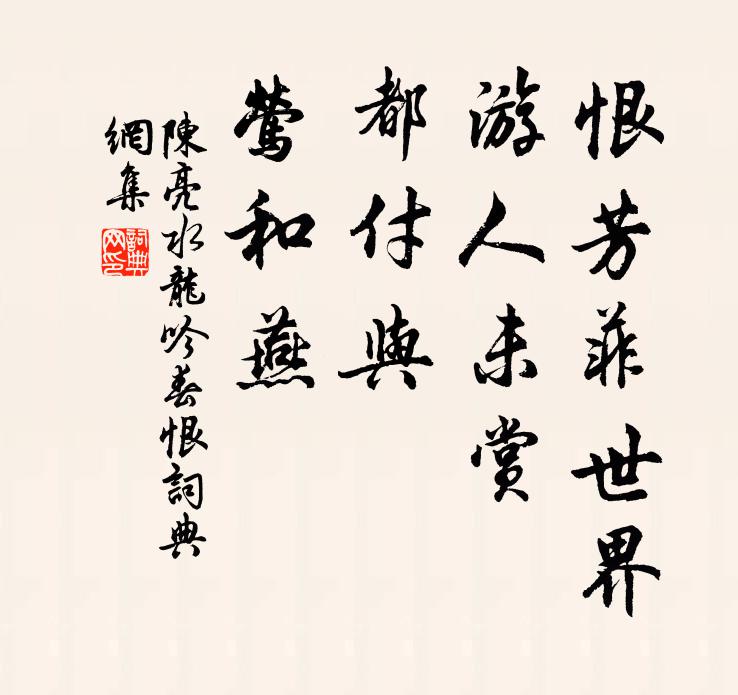 恨芳菲世界
游人未赏
都付與
莺和燕
陳亮水龍吟春恨詞典
網集
詞典
网印